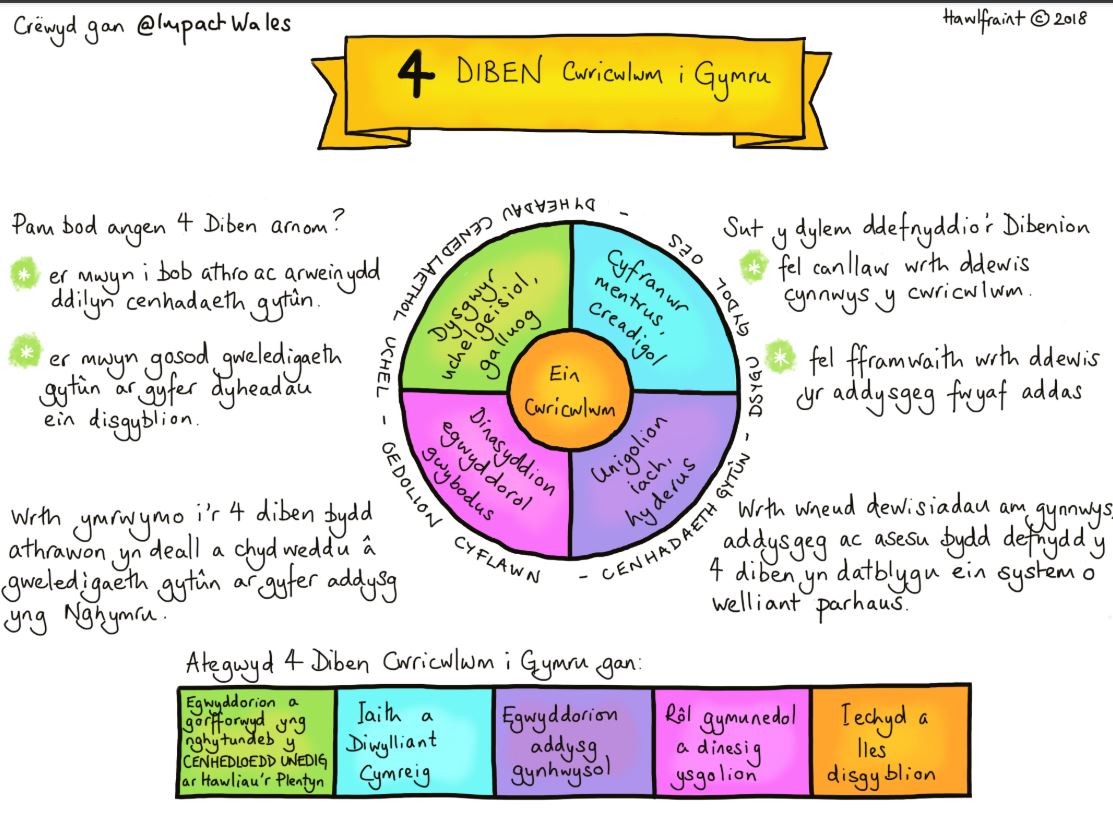 Crëwyd gan @ImpactWales
Hawlfraint © 2018
4 DIBEN Cwricwlwm i Gymru
Pam bod angen 4 Diben arnom?
* er mwyn i bob athro ac arweinydd
ddilyn cenhadaeth gytûn.
* er mwyn gosod gweledigaeth
gytûn ar gyfer dyheadau
ein disgyblion.
Wrth ymrwymo i'r 4 diben bydd
athrawon yn deall a chydweddu â
gweledigaeth gytûn ar gyfer addysg
yng Nghymru.
DYHEADAU CENEDLAETHOL UCHEL - OEDOLION CYFLAWN - CENHADAETH GYTÛN - DSYGU GYDOL OES -
Dysgwyr
uchelgeisiol,
galluog
Cyfranwr
mentrus,
creadigol
Ein
Cwricwlwm
Dinasyddion
egwyddorol
gwybodus
Unigolion
iach,
hyderus
Sut y dylem ddefnyddio'r Dibenion
* fel canllaw wrth ddewis
cynnwys y cwricwlwm.
* fel fframwaith wrth ddewis
yr addysgeg fwyaf addas
Wrth wneud dewisiadau am gynnwys,
addysgeg ac asesu bydd defnydd y
4 diben yn datblygu ein system o
welliant parhaus.
Ategwyd 4 Diben Cwricwlwm i Gymru gan:
Egwyddorion a
gorfforwyd yng
nghytundeb y
CENHEDLOEDD UNEDIG
ar Hawliau'r Plentyn
Iaith a
Diwylliant
Cymreig
Egwyddorion
addysg
gynhwysol
Rôl gymunedol
a dinesig
ysgolion
Iechyd a
lles
disgyblion